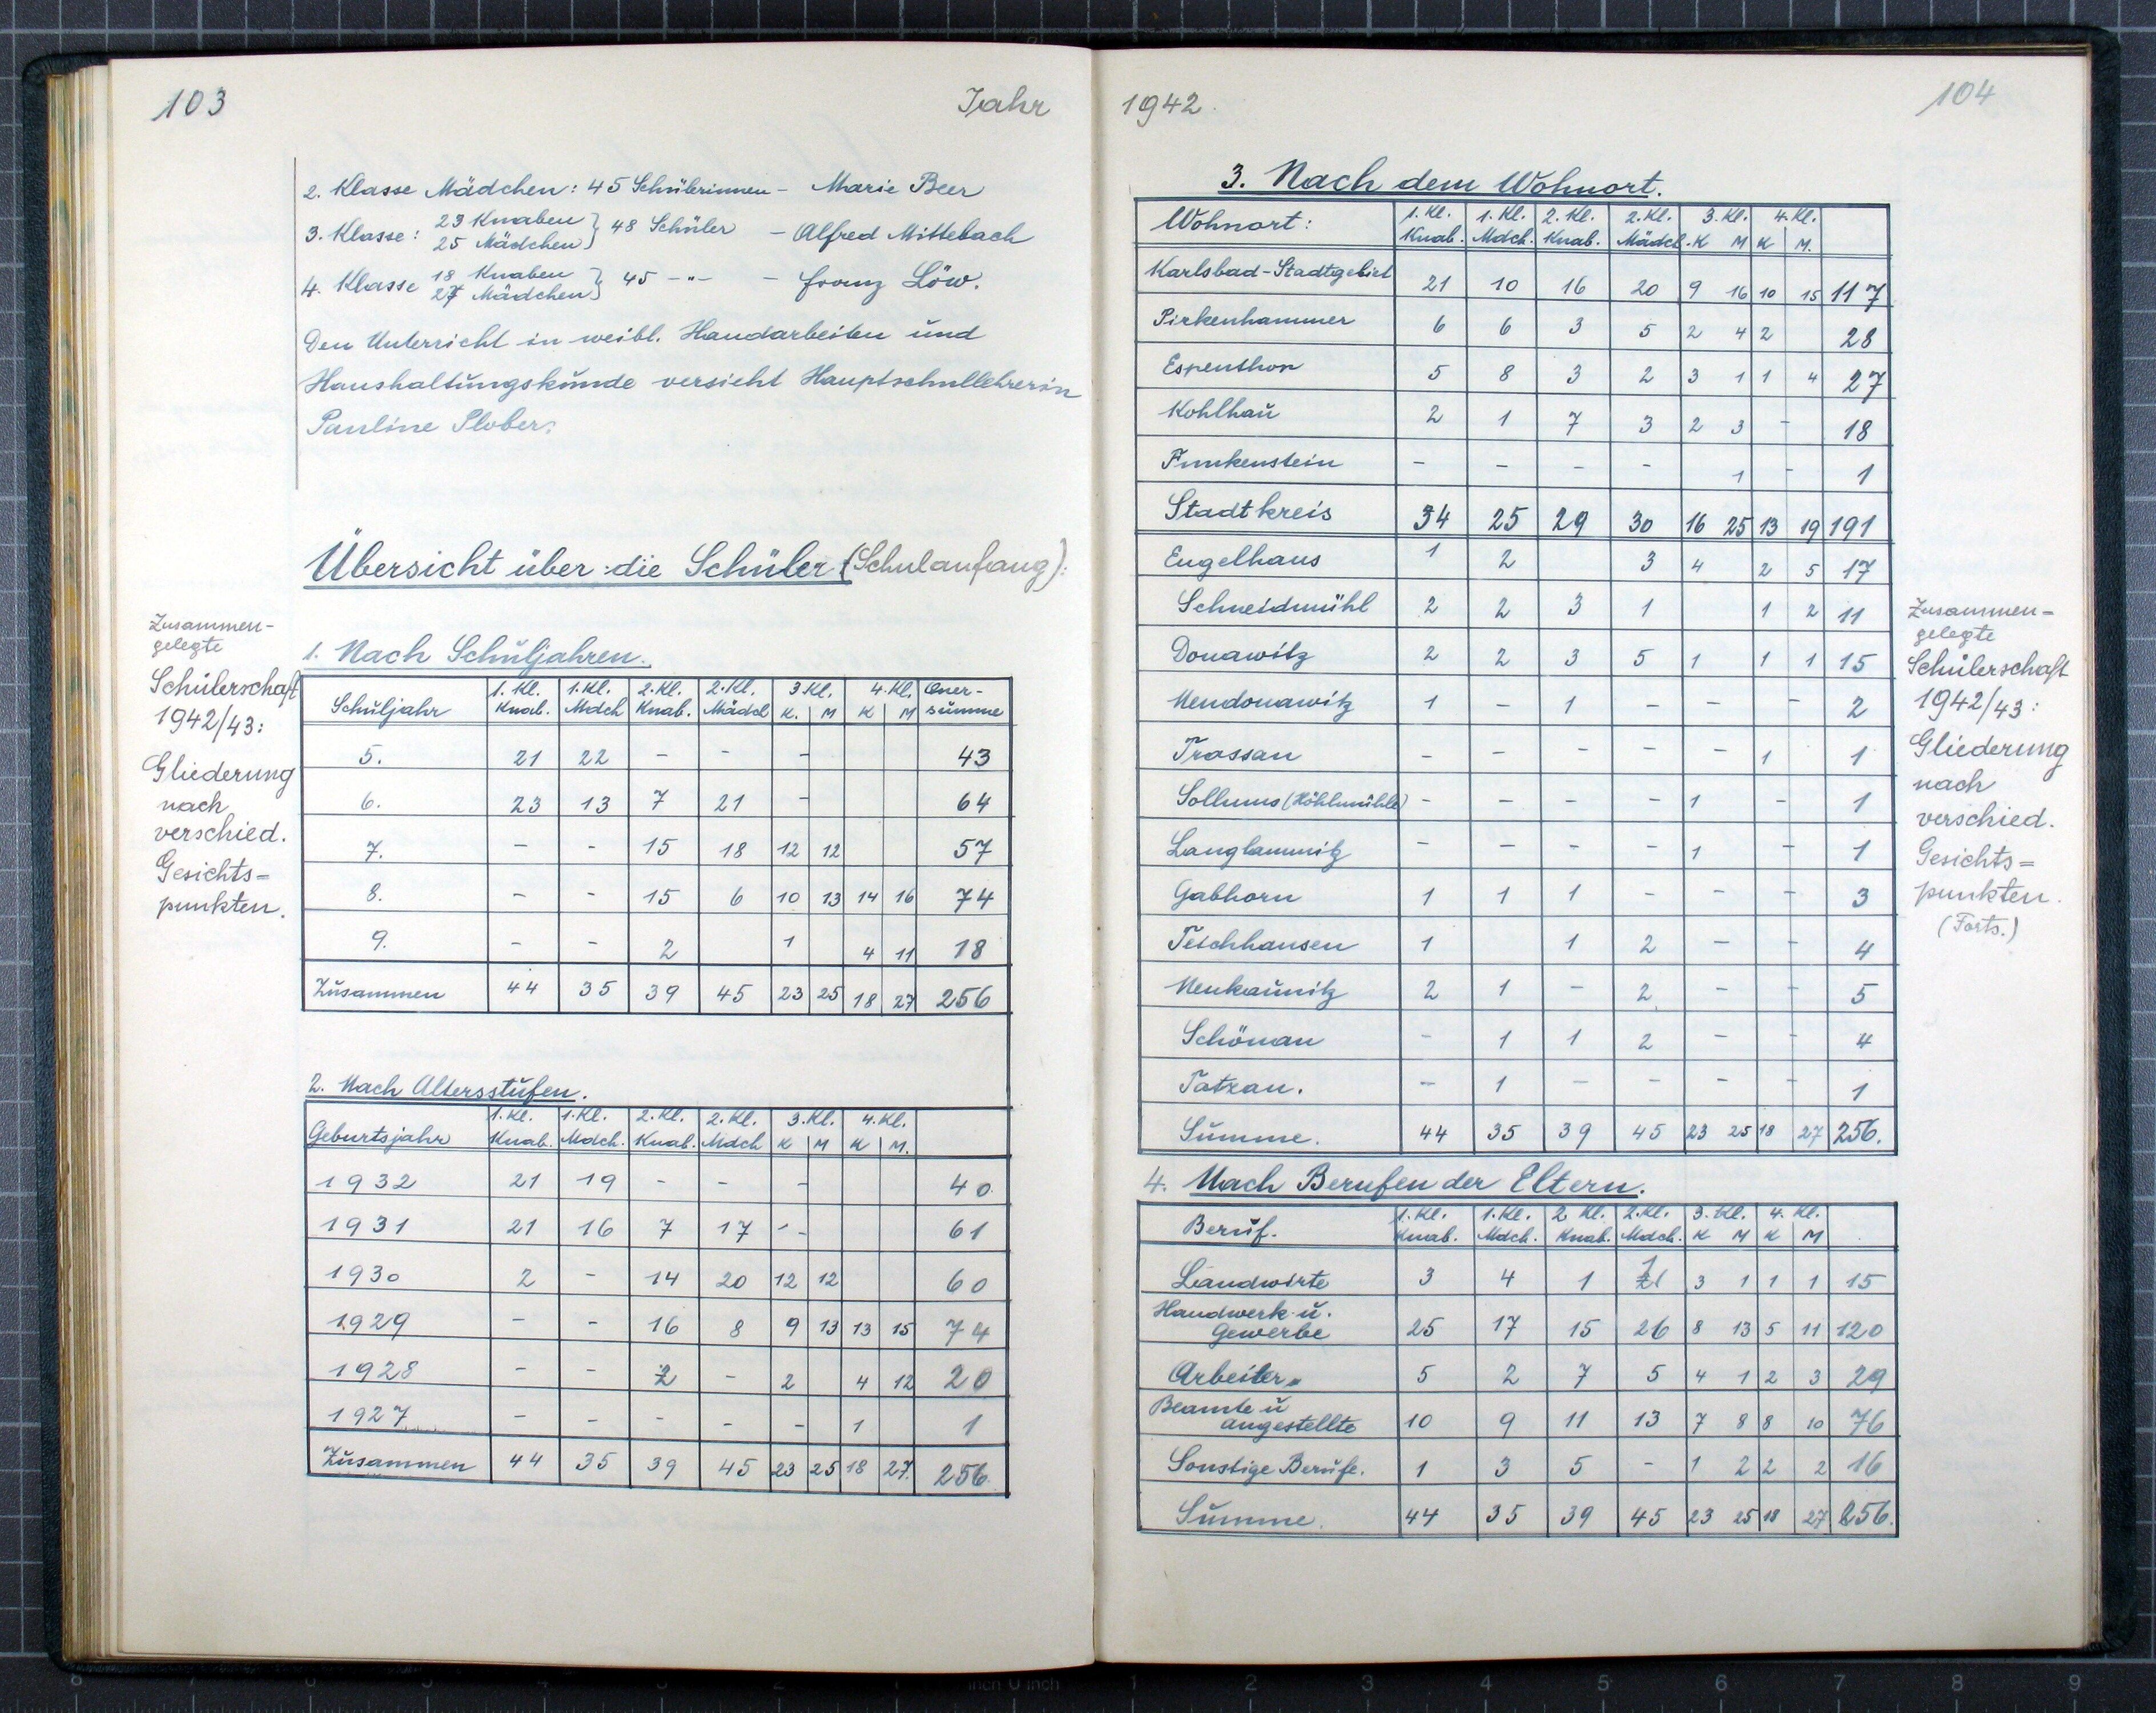 103
Jahr
2. Klasse Mädchen: 45 Schülerinnen - Marie Beer
3. Klasse: 23 Knaben 25 Mädchen } 48 Schüler - Alfred Mittebach
4. Klasse 18 Knaben 27 Mädchen } 45 -"- - Franz Löw.
Den Unterricht in weibl. Handarbeiten und
Haushaltungskunde versieht Hauptschullehrerin
Pauline Plober.
Übersicht über die Schüler (Schulanfang):
Zusammen-
gelegte
Schülerschaft
1942/43:
Gliederung
nach
verschied.
Gesichts=
punkten.
1. Nach Schuljahren.
Schuljahr 1. Kl. Knab. 1. Kl. Mdch 2. Kl. Knab. 2. Kl. Mädch 3 Kl. K. M 4. Kl. K M Quer-summe
5. 21 22 - - - 43
6. 23 13 7 21 - 64
7. - - 15 18 12 12 57
8. - - 15 6 10 13 14 16 74
9. - - 2 1 4 11 18
Zusammen 44 35 39 45 23 25 18 27 256
2. Nach Altersstufen.
Geburtsjahr 1. Kl. Knab. 1. Kl. Mdch. 2. Kl. Knab. 2. Kl. Mdch 3. Kl. K M 4. Kl. K M.
1932 21 19 - - - 40.
1931 21 16 7 17 - - 61
1930 2 - 14 20 12 12 60
1929 - - 16 8 9 13 13 15 74
1928 - - 2 - 2 4 12 20
1927 - - - - - 1 1
Zusammen 44 35 39 45 23 25 18 27. 256.
1942.
104
3. Nach dem Wohnort.
Wohnort: 1. Kl. Knab. 1. Kl. Mdch. 2. Kl. Knab. 2. Kl. Mädch. 3. Kl. K M 4. Kl. K M.
Karlsbad-Stadtgebiet 21 10 16 20 9 16 10 15 117
Pirkenhammer 6 6 3 5 2 4 2 28
Espenthor 5 8 3 2 3 1 1 4 27
Kohlhau 2 1 7 3 2 3 - 18
Funkenstein - - - - 1 - 1
Stadtkreis 34 25 29 30 16 25 13 19 191
Engelhaus 1 2 3 4 2 5 17
Schneidmühl 2 2 3 1 1 2 11
Donawitz 2 2 3 5 1 1 1 15
Neudonawitz 1 - 1 - - - 2
Trossau - - - - - 1 1
Sollmus (Höhlmühle) - - - - 1 - 1
Langlamnitz - - - - 1 - 1
Gabhorn 1 1 1 - - - 3
Teichhausen 1 1 2 - - 4
Neukaunitz 2 1 - 2 - - 5
Schönau - 1 1 2 - - 4
Tatzau. - 1 - - - - 1
Summe. 44 35 39 45 23 25 18 27 256.
4. Nach Berufen der Eltern.
Beruf. 1. Kl. Knab. 1. Kl. Mdch. 2 Kl. Knab. 2. Kl. Mdch. 3. Kl. K M 4. Kl. K M
Landwirte 3 4 1 1 3 1 1 1 15
Handwerk u.
Gewerbe 25 17 15 26 8 13 5 11 120
Arbeiter. 5 2 7 5 4 1 2 3 29
Beamte u
angestellte 10 9 11 13 7 8 8 10 76
Sonstige Berufe. 1 3 5 - 1 2 2 2 16
Summe. 44 35 39 45 23 25 18 27 256.
Zusammen=
gelegte
Schülerschaft
1942/43:
Gliederung
nach
verschied.
Gesichts=
punkten.
(Forts.)
inch 0 inch
1 2 3 4 5 6 7 8 9